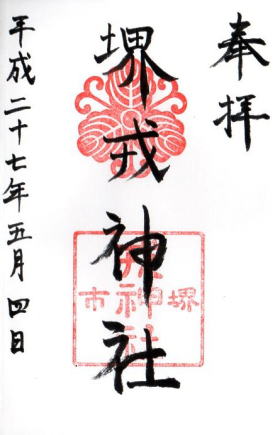 奉拝
堺戎神社
平成二十七年五月四日
堺
戎神社
市